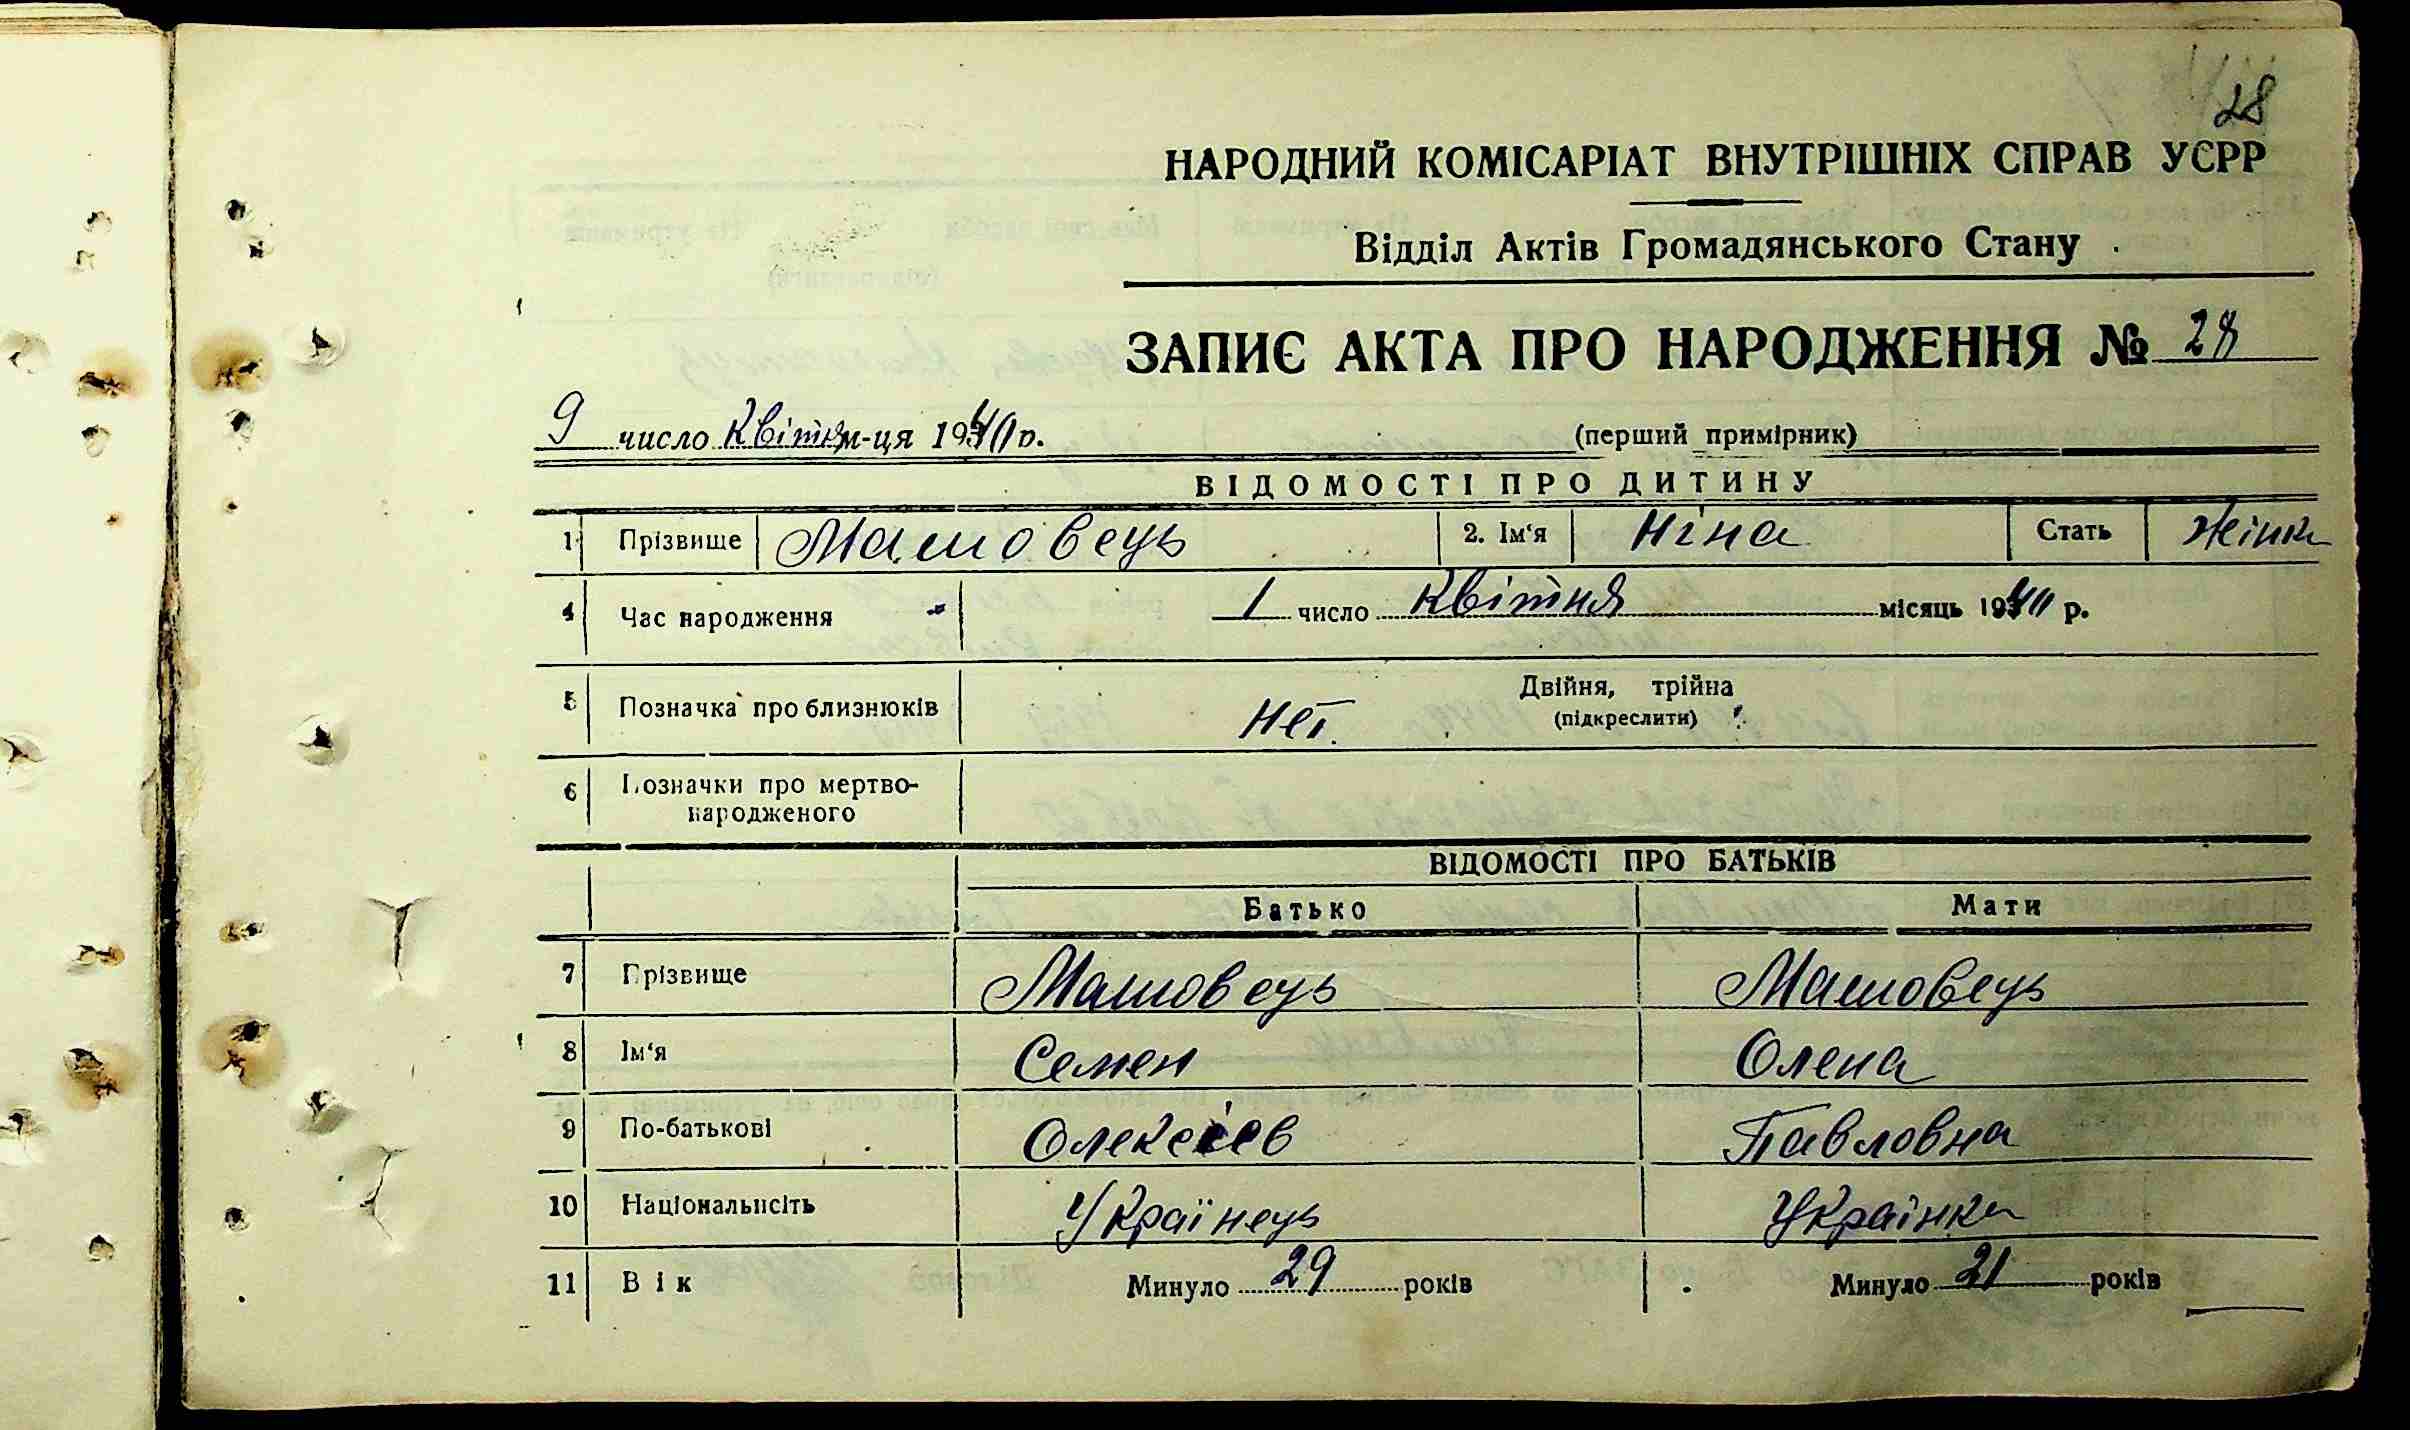 28
НАРОДНИЙ КОМІСАРІАТ ВНУТРІШНІХ СПРАВ УСРР
Відділ Актів Громадянського Стану
ЗАПИС АКТА ПРО НАРОДЖЕННЯ № 28
9 число Квітня м-ця 1940 р. (перший примірник)
ВІДОМОСТІ ПРО ДИТИНУ
1 Прізвище Машовець 2. Ім'я Ніна Стать Жінка
4 Час народження 1 число Квітня місяць 1940 р.
5 Позначка про близнюків нет. Двійня, трійна
(підкреслити)
6 Позначки про мертво-
народженого
ВІДОМОСТІ ПРО БАТЬКІВ
Батько Мати
7 Прізвище Машовець Машовець
8 Ім'я Семен Олена
9 По-батькові Олексієв Павловна
10 Національність Українець Українка
11 Вік Минуло 29 років Минуло 21 років